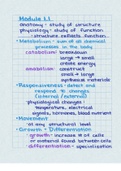 Module 1.1
anatomy - study of structure
physiology - study of function
structure reflects function
• Metabolism - sum of all chemical
processes in the body
catabolism: breakdown
large → small
create energy
anabolism: construct
small → large
synthesize materials
• Responsiveness - detect and
respond to changes
(internal / external)
physiological changes:
temperature, electrical
signals, hormones, blood nutrient
• Movement
at any structural level
• Growth + Differentiation
growth - increase # of cells
or material found between cells
differentiation - specialization